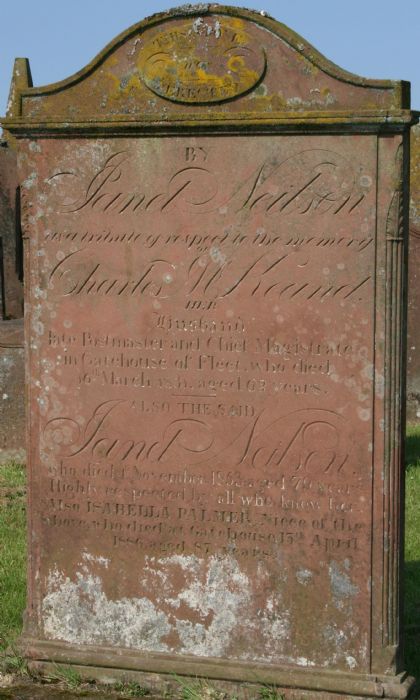 THIS STONE
IS
ERECTED
BY
Janet Neilson
as a tribute of respect to the memory
of
Charles McKeand,
HER
Husband
late Postmaster and Chief Magistrate
in Gatehouse of Fleet, who died
March aged 63 years.
ALSO THE SAID
Janet Neilson,
who died 1 November 1863 aged 79 years
Highly respected by all who knew her.
Also ISABELLA PALMER, Niece of the
above, who died at Gatehouse 13th April
1886, aged 87 years.